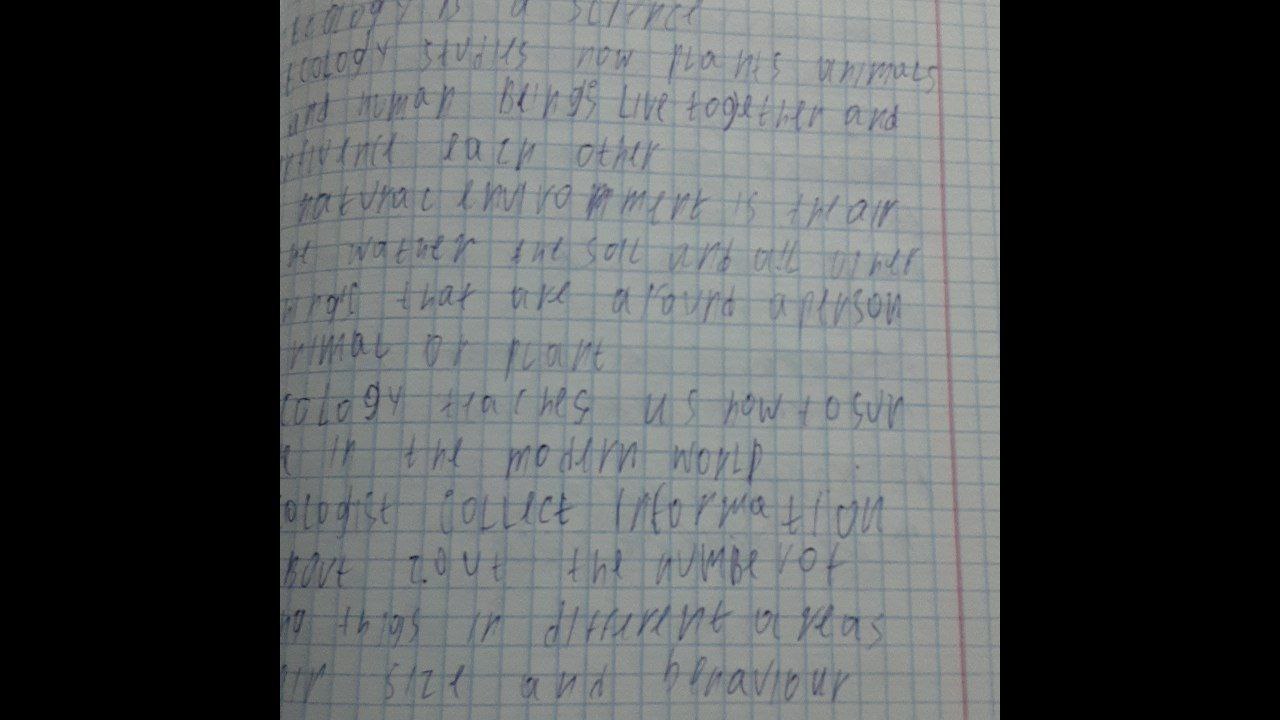 ecology is a science
ecology studies how plants animals
and human Beings live together and
influence each other
natural enviromment is the air
he wather the soil and all other
things that are around a person
nimal or plant
cology teaches us how to surv
e in the modern world
ologist collect information
about the number of
ng thigs in different areas
eir size and behaviour